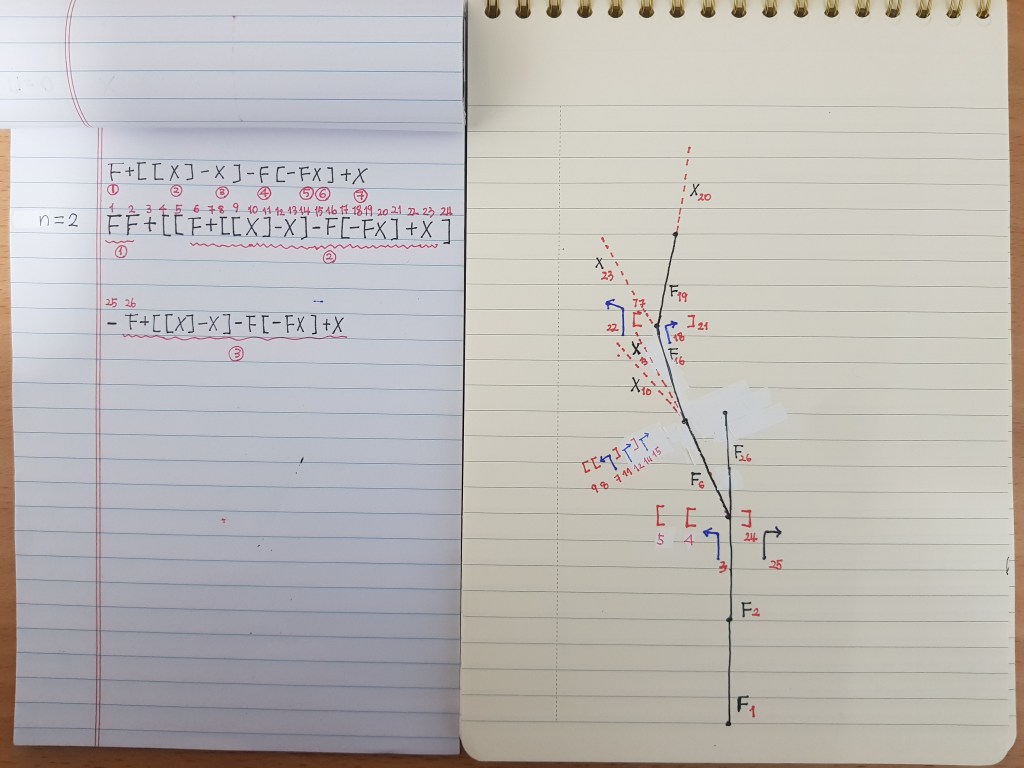 F+[[X]-X]-F[-FX]+X
① ② ③ ④ ⑤ ⑥ ⑦
1 2 3 4 5 6 7 8 9 10 11 12 13 14 15 16 17 18 19 20 21 22 23 24
n=2 FF+[[F+[[X]-X]-F[-FX]+X]
① ②
25 26
-F+[[X]-X]-F[-FX]+X
③
X20
X
23
F19
17
[
22
]21
18
F16
X
X10
F26
[[ ] ]
9 8 7 11 12 14 15
F6
[ [ ]
5 4 24
3 25
F2
F1